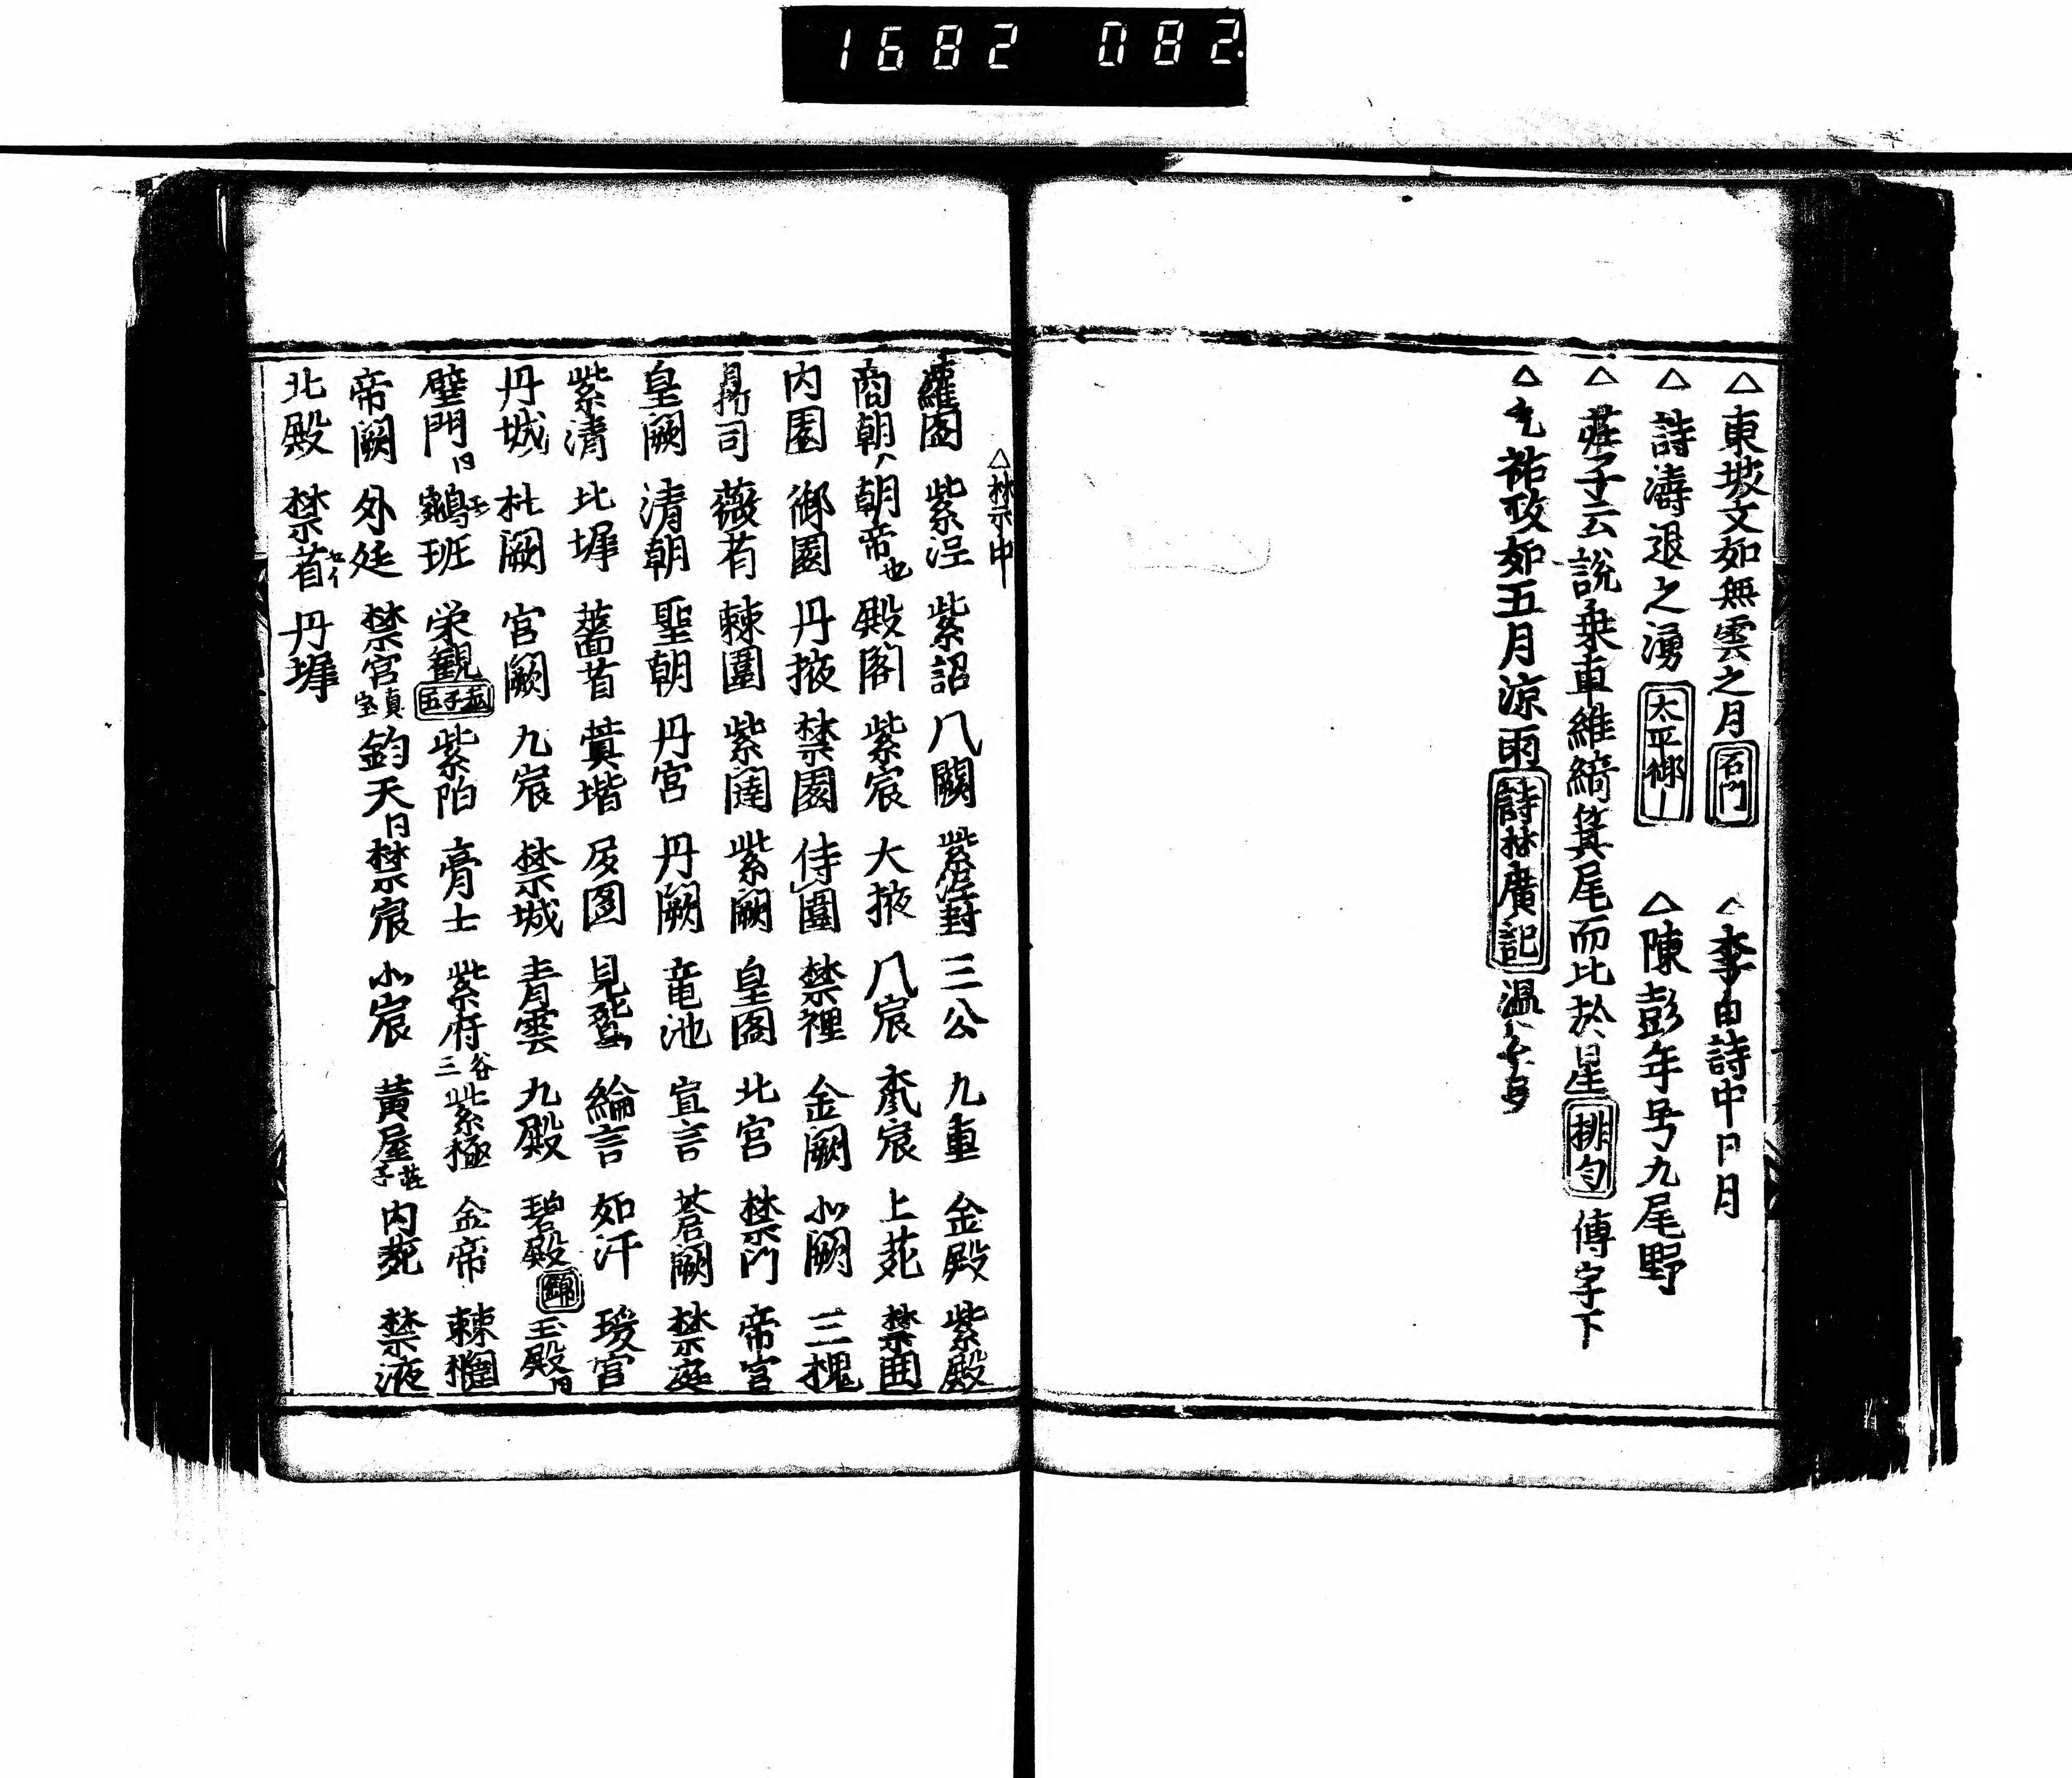 1682 082
△東坡文如無雲之月 石門 △李白詩中日月
△詩濤退之湧 太平御｜ △陳彭年号九尾野
△莊子云說乗車維綺箕尾而比於星 排勻 傅字下
△元祐政如五月涼雨 詩林廣記 温公
△禁示中
紫泥 紫詔 八關 紫泥封 三公 九重 金殿 紫殿
商朝 朝帝也 殿閣 紫宸 大掖 八宸 宸 上苑 禁囲
内園 御園 丹掖 禁園 侍園 禁裡 金闕 北闕 三槐
司 薇省 棘圍 紫闥 紫闕 皇閣 北宮 禁門 帝宮
皇闕 清朝 聖朝 丹宮 丹闕 竜池 宣言 蒼闕 禁庭
紫清 比墀 薔省 蓂堦 図 見 綸言 如汗 瑗宮
丹城 杜闕 宮闕 九宸 禁城 青雲 九殿 碧殿 錦 玉殿 同
壁門 同 鵷班 栄観 孟子五 紫陌 膏士 紫府 谷三 紫極 金帝 棘圍
帝闕 外廷 禁宮 真宝 鈞天 同 禁宸 北宸 黄屋 荘子 内苑 禁液
北殿 禁省 丹墀